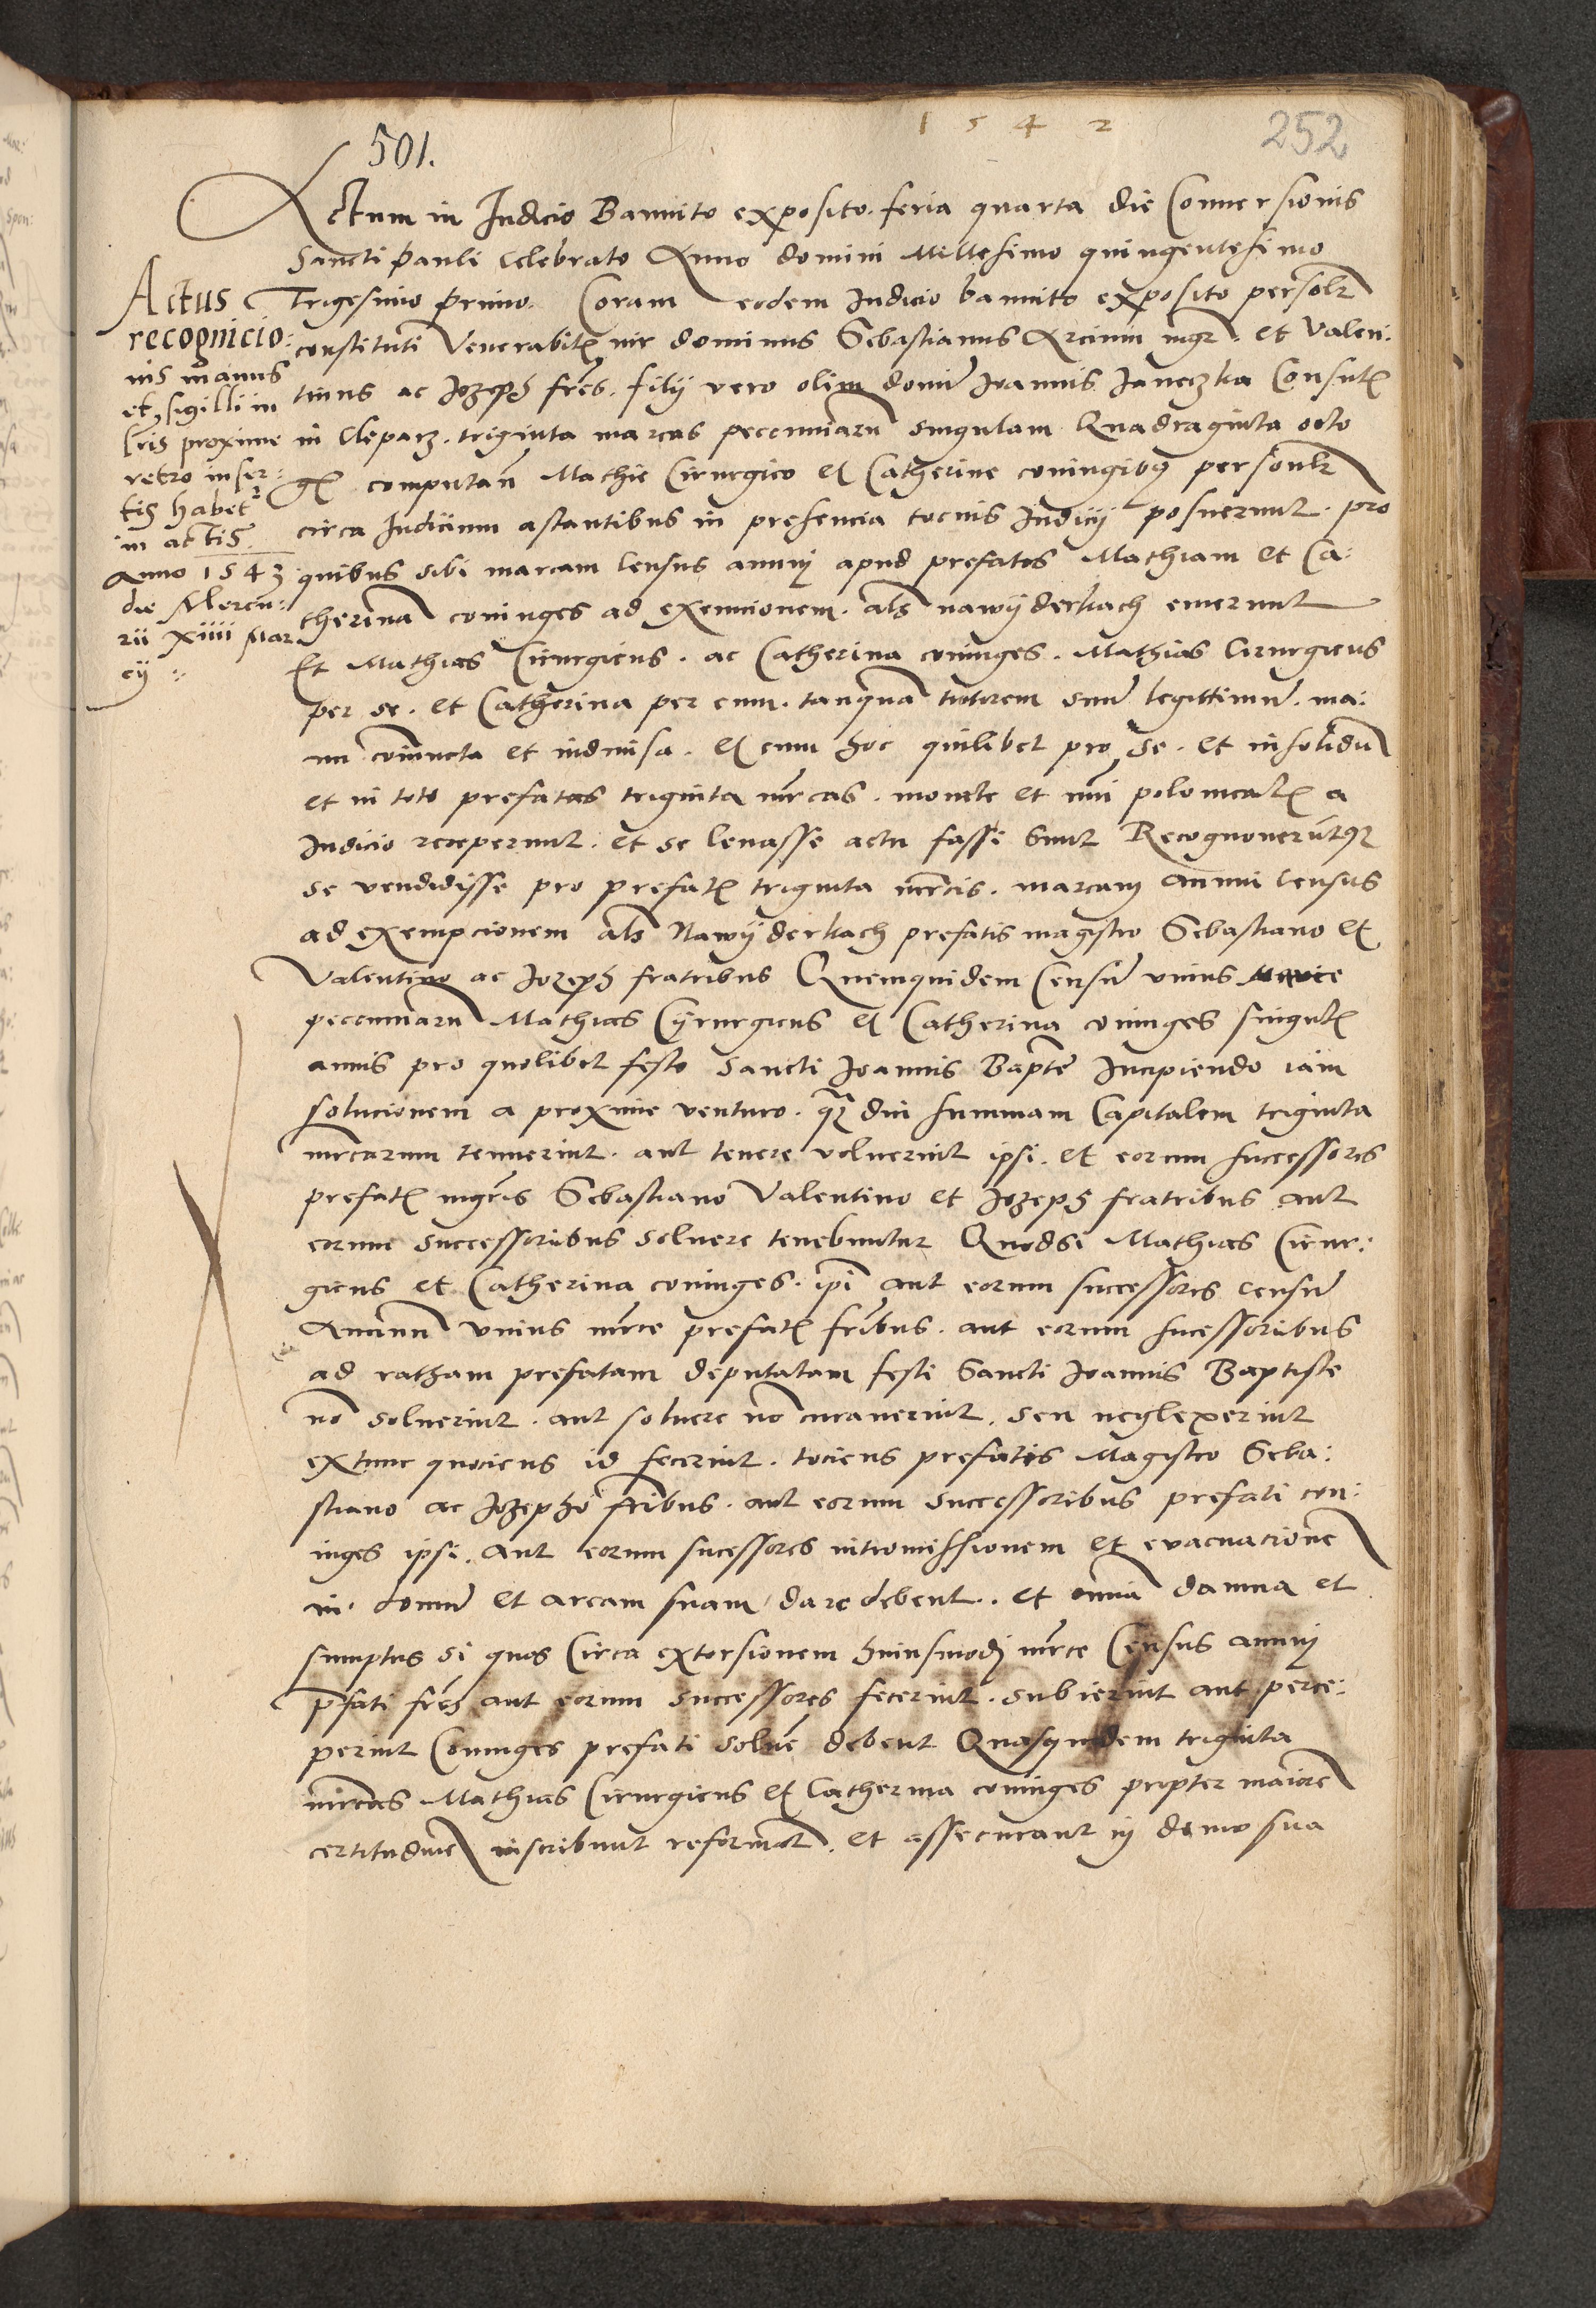 1 5 4 2
252
501.
Actum in Iudicio Bannito exposito. feria quarta die Conuersionis
Sancti Pauli celebrato Anno domini Millesimo quingentesimo
Trigesimo primo. Coram eodem Iudicio bannito exposito personlr
constituti Venerabil vir dominus Sebastianus Arcium mgr. et Valen:
tinus ac Iozeph fres. filij vero olim domi Ioannis Ianeczka Consul
in Cleparz. triginta marcas pecuniaru singulam Quadraginta octo
gr computan Mathie Cirurgico et Catherine coniugibus personlr
circa Iudicium astantibus in presencia tocius Iudicij posuerunt. pro
quibus sibi marcam census annuj apud prefatos Mathiam et Ca:
therina coniuges ad exempcionem. als nawyderkach emerunt
Et Mathias Cirurgicus. ac Catherina coniuges. Mathias Cirurgicus
per se. et Catherina per eum. tanqua tutorem suu legittimu. ma:
nu coniuncta et indiuisa. et cum hoc quilibet pro se. et insolidu
et in toto prefatas triginta mrcas. monete et nui polonical a
Iudicio receperunt. et se leuasse actu fassi sunt Recognoueruntqz
se vendidisse pro prefat triginta mrcis. marcam annui census
ad exempcionem als Nawyderkach prefatis magistro Sebastiano et
Valentino ac Iozeph fratribus Quemquidem Censu vnius
pecuniaru Mathias Cyrurgicus et Catherina coniuges singul
annis pro quolibet festo Sancti Ioannis Bapte Incipiendo iam
solucionem a proxime venturo. qz diu summam Capitalem triginta
mrcarum tenuerint. aut tenere voluerint ipsi. et eorum successores
prefat mgris Sebastiano Valentino et Iozeph fratribus aut
eorum successoribus soluere tenebuntur Quodsi Mathias Cirur:
gicus et Catherina coniuges. ipi aut eorum successores censu
Annuu vnius mrce prefat fribus. aut eorum sucessoribus
ad ratham prefatam deputatam festi Sancti Ioannis Baptiste
no soluerint. aut soluere no curauerint. seu neglexerint
extunc quociens id fecerint. tociens prefatis Magistro Seba:
stiano ac Iozepho fribus. aut eorum successoribus prefati con:
iuges ipsi. aut eorum sucessores intromissionem et evacuacione
in domu et aream suam dare debent. et omnia damna et
sumptus si quos Circa extorsionem huiusmodj mrce Census annuj
pfati fres aut eorum successores fecerint. subierint aut perce:
perint Coniuges prefati solue debent Quasquidem triginta
mrcas Mathias Cirurgicus et Catherina coniuges propter maiore
certitudine inscribunt reformat. et assecurant in domo sua
Actus
recognicio:
nis manus
et sigilli in
lris proxime
retro inser:
tis habet
in actis
Anno 1543
die Mercu:
rii xiiii Mar
cij